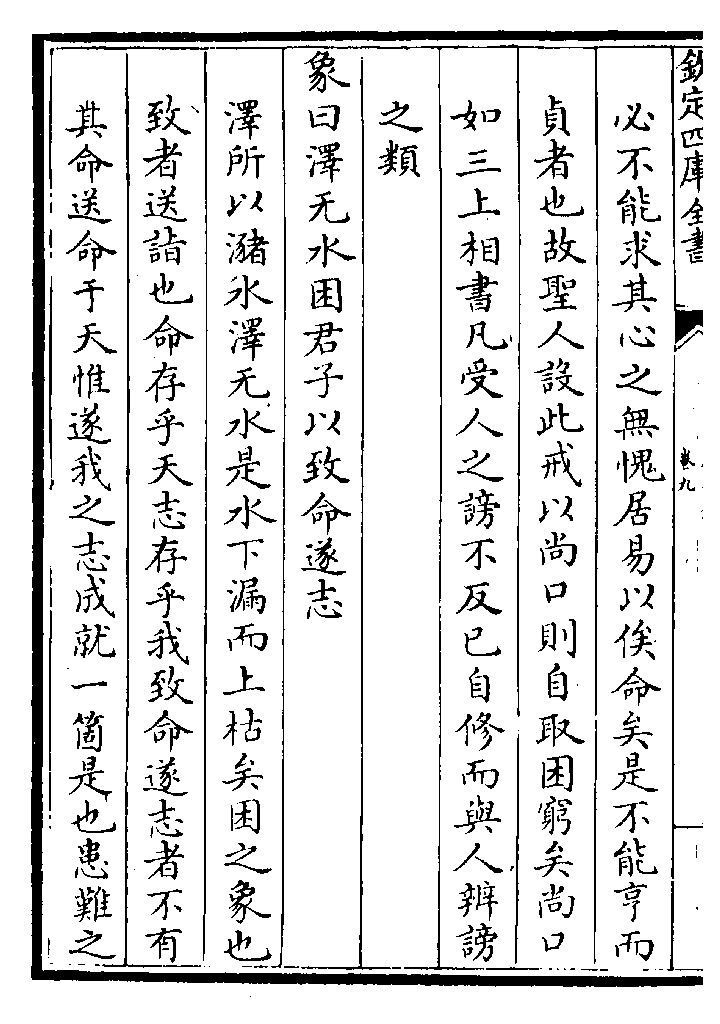 欽定四庫全書
卷九
必不能求其心之無愧居易以俟命矣是不能亨而
貞者也故聖人設此戒以尚口則自取困窮矣尚口
如三上相書凡受人之謗不反已自修而與人辨謗
之類
象曰澤无水困君子以致命遂志
澤所以瀦水澤无水是水下漏而上枯矣困之象也
致者送詣也命存乎天志存乎我致命遂志者不有
其命送命于天惟遂我之志成就一箇是也患難之